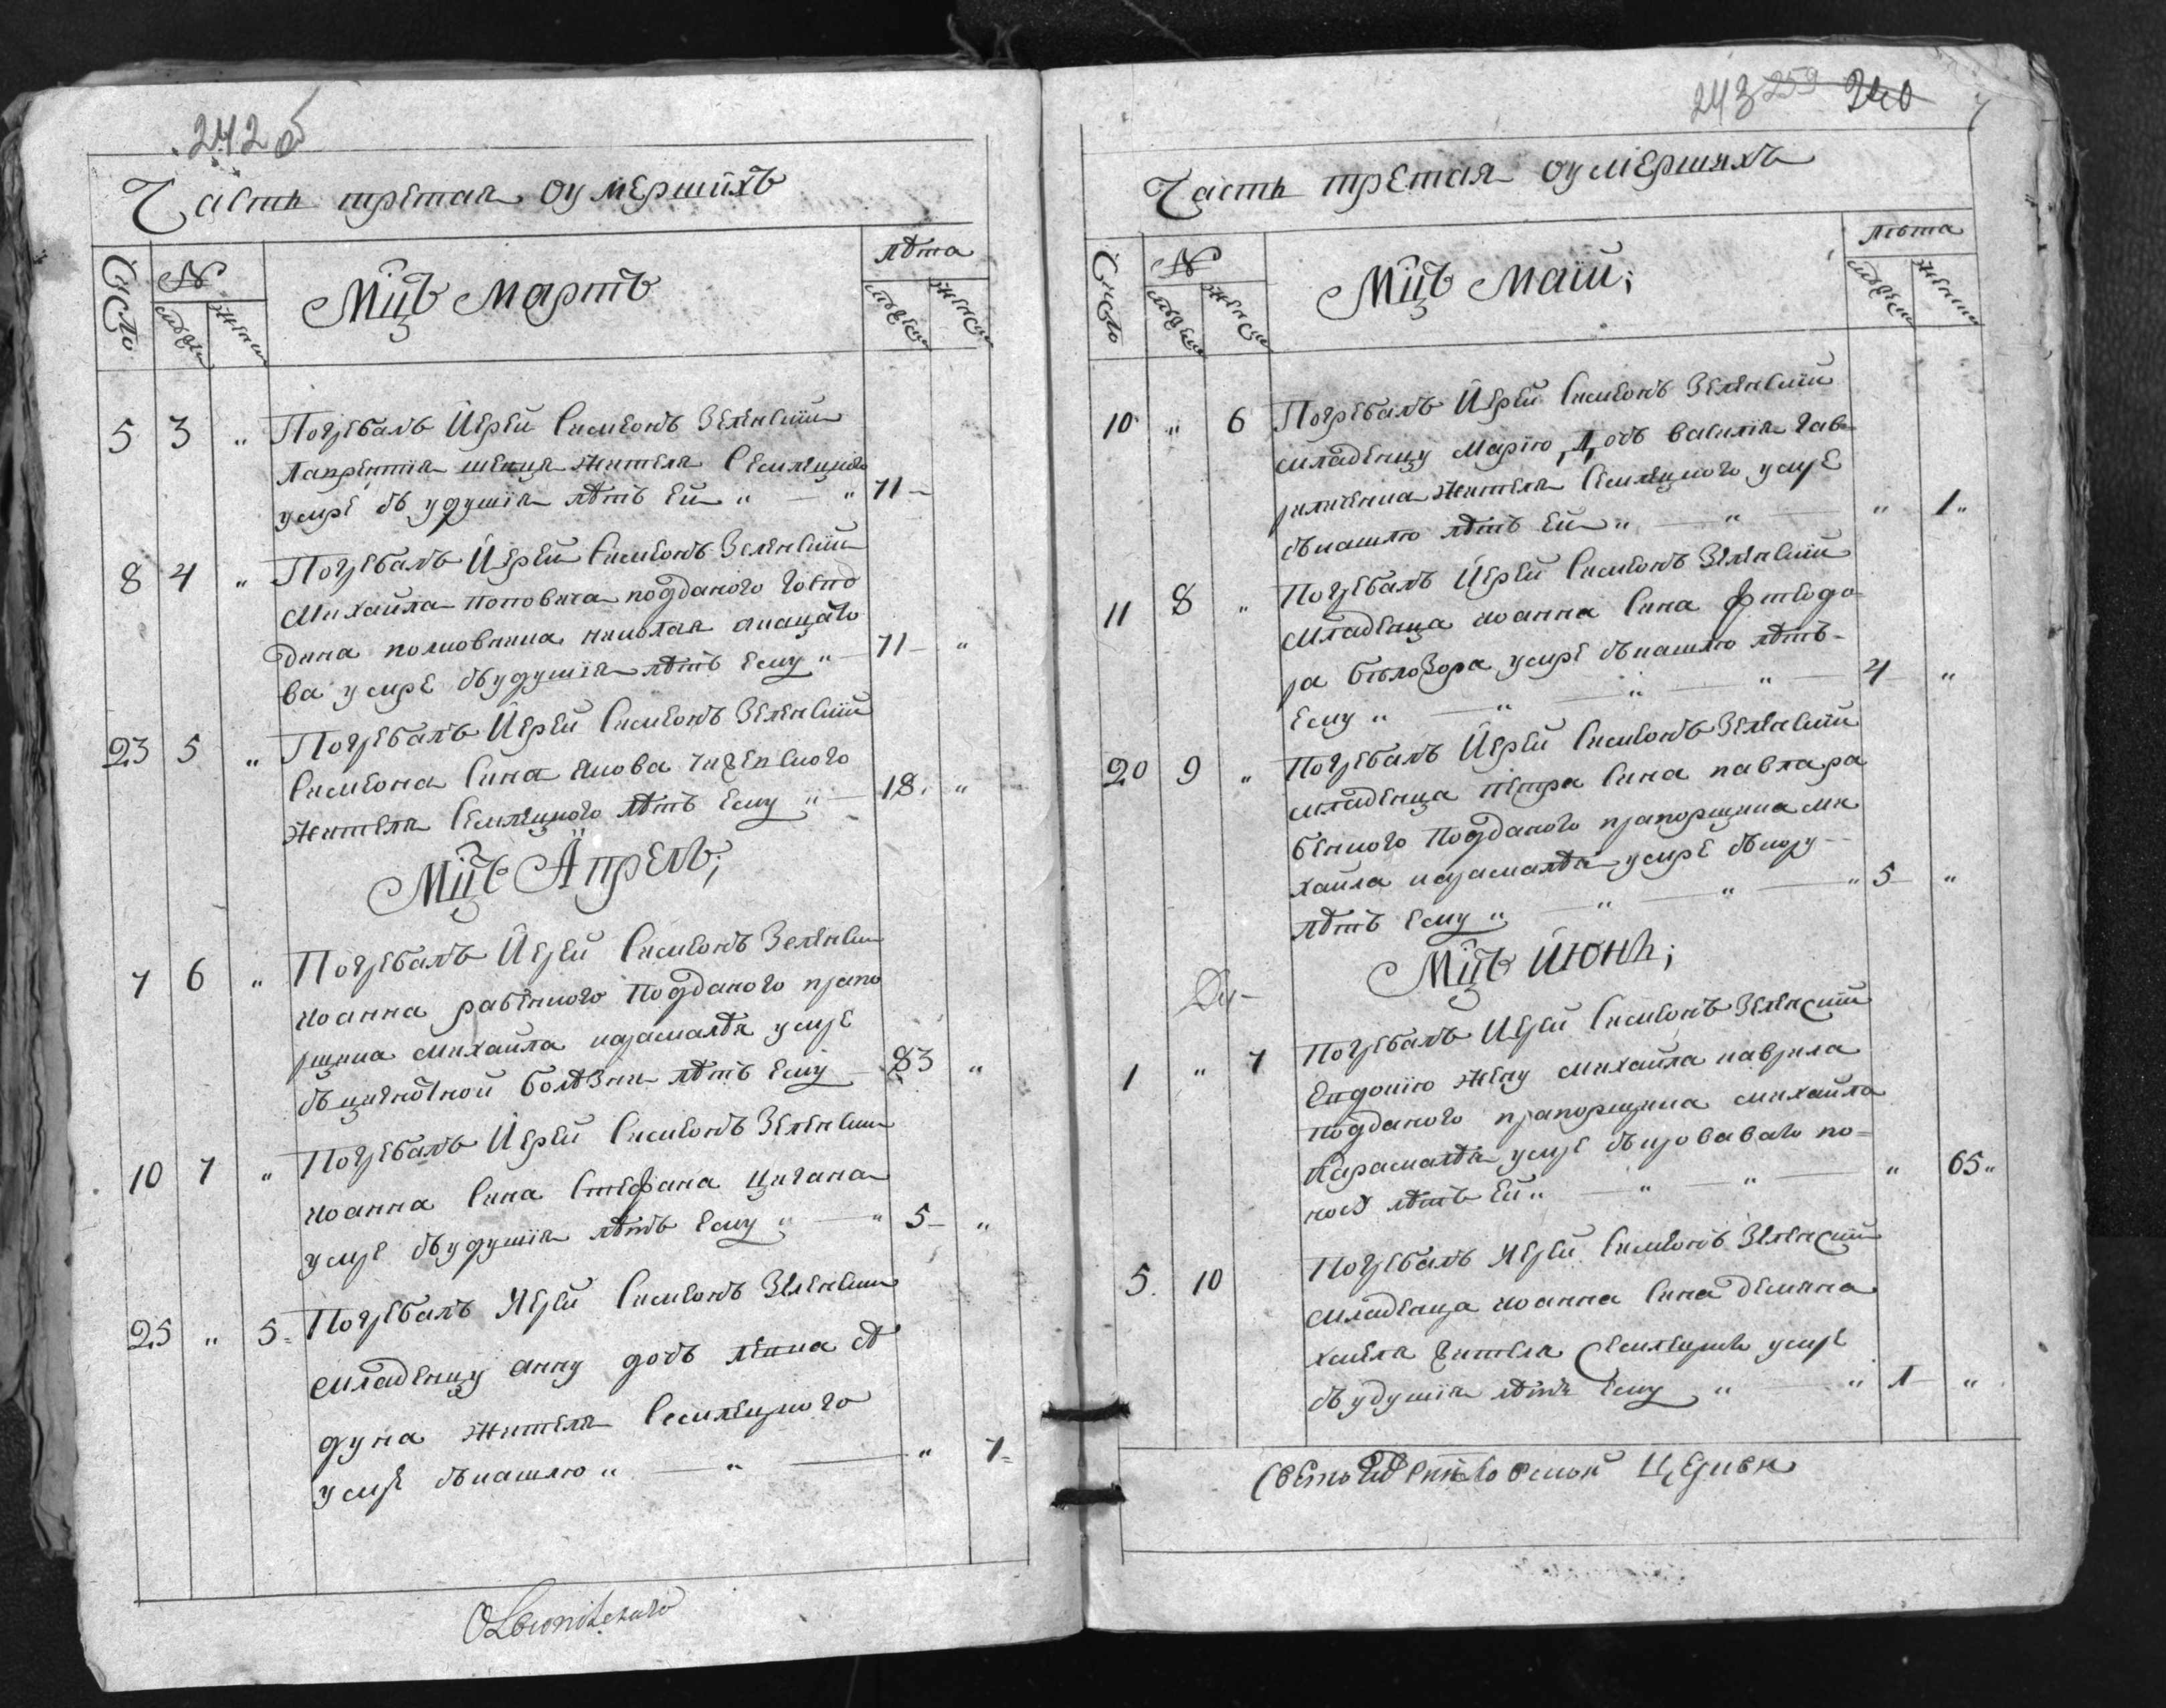 242 об
Часть третая оумершихъ
Число
№
мужеск
женск
Мцъ Мартъ
лѣта
мужеск
женски
5 3 „ Погребалъ Иерей Симеонъ Зеленскїи
Лаврентїя шевца жителя Семлецкого
умре ѿ удушїя лѣтъ ей „ — „ 71 —
8 4 „ Погребалъ Иерей Симеонъ Зеленскїи
Михайла Поповича подданого Госпо
дина полковника николая
ва умре ѿ удушїя лѣтъ ему „ — 71 — „
23 5 „ Погребалъ Иерей Симеонъ Зеленскїи
Симеона Сина Якова
жителя Семлецкого лѣтъ ему „ — 18. „
Мцъ Апрель;
7 6 „ Погребалъ Иерей Симеонъ Зеленски
иоанна рабенкого подданого прапо
рщика михайла карамалѣя умре
ѿ болѣзни лѣтъ ему — 83 „
10 7 „ Погребалъ Иерей Симеонъ Зеленски
иоанна Сина Стефана Цигана
умре ѿ удушїя лѣтъ ему „ — „ 5 — „
25 „ 5 = Погребалъ Иерей Симеонъ Зеленски
младенцу анну дочь
дуна жителя Семлецкого
умре ѿ кашлю „ — „ — „ 7 =
243 259 240
Часть третая оумершихъ
Число
№
мужеск
женски
Мцъ Маїй;
лѣта
мужески
женски
10 „ 6 Погребалъ Иерей Симеонъ Зеленскїи
младенцу Марїю, дочь василїя гав
риленка жителя Семлецкого умре
ѿ кашлю лѣтъ ей „ — „ — „ 1 „
11 8 „ Погребалъ Иерей Симеонъ Зеленскїи
младенца иоанна Сина Фтеодо
ра бѣлозора умре ѿ кашлю лѣтъ -
ему „ — „ — „ — „ 4 — „
20 9 „ Погребалъ Иерей Симеонъ Зеленскїи
младенца петра Сина павла ра
бенкого подданого прапорщика ми
хайла карамалѣя умре ѿ кору --
лѣтъ ему „ — „ — „ — „ 5 — „
Мцъ Июнь;
1 „ 7 Погребалъ Иерей Симеонъ Зеленскїи
Евдокїю жену михайла гаврила
подданого прапорщика михайла
Карамалѣя умре ѿ кроваваго по=
носу лѣтъ ей „ — „ — „ — „ 65 „
5. 10 Погребалъ Иерей Симеонъ Зеленскїи
младенца иоанна Сина демяна
хмеля жителя Семлецкого умре
ѿ удушїя лѣтъ ему „ — „ 1 — „
церкви